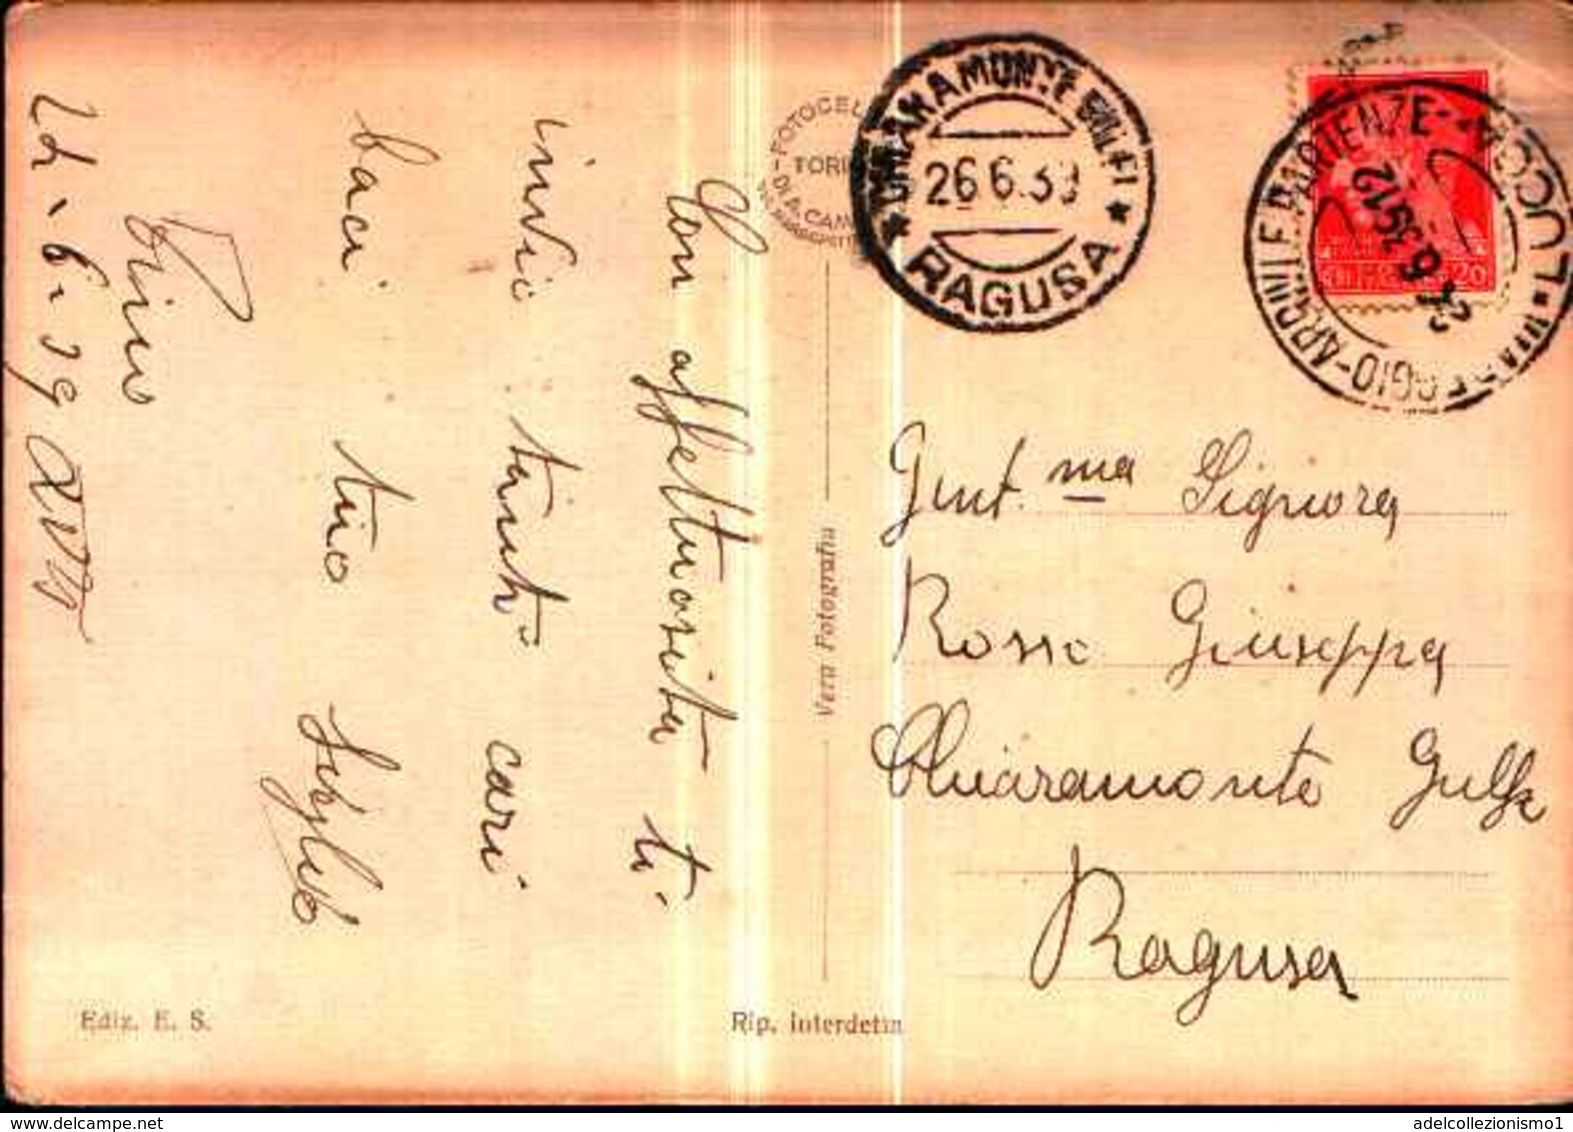 Con affettuosità ti
invio tanti cari
baci tuo figlio
Pino
22.6.39 XVII
FOTOCEL
TORI
CHIARAMONTE GULFI
26.6.39
RAGUSA
LUCCA
ARRIVI E PARTENZE
6.39 12
20
Gent.ma Signora
Rosso Giuseppa
Chiaramonte Gulfi
Ragusa
Vera Fotografia
Ediz. E. S.
Rip. interdetta
adelcollezionismo1